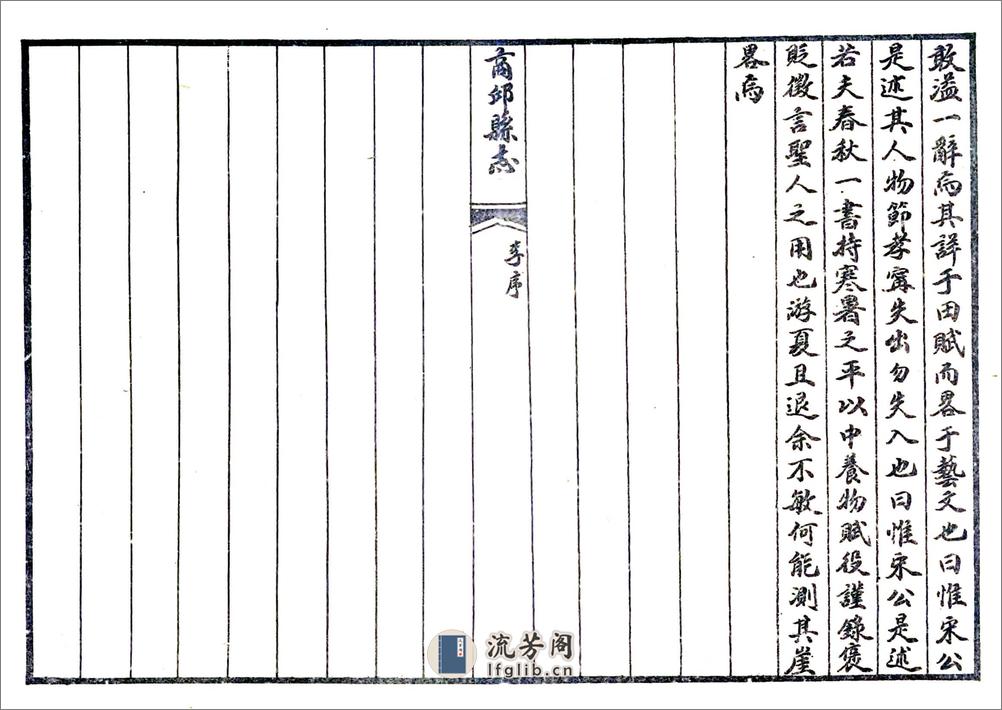 敢溢一辭焉其詳于田賦而畧于藝文也曰惟宋公
是述其人物節孝寧失出勿失入也曰惟宋公是述
若夫春秋一書持寒暑之平以中養物賦役謹錄褒
貶微言聖人之用也游夏且退余不敏何能測其崖
畧焉
商邱縣志
李序
流芳阁
lfglib.cn